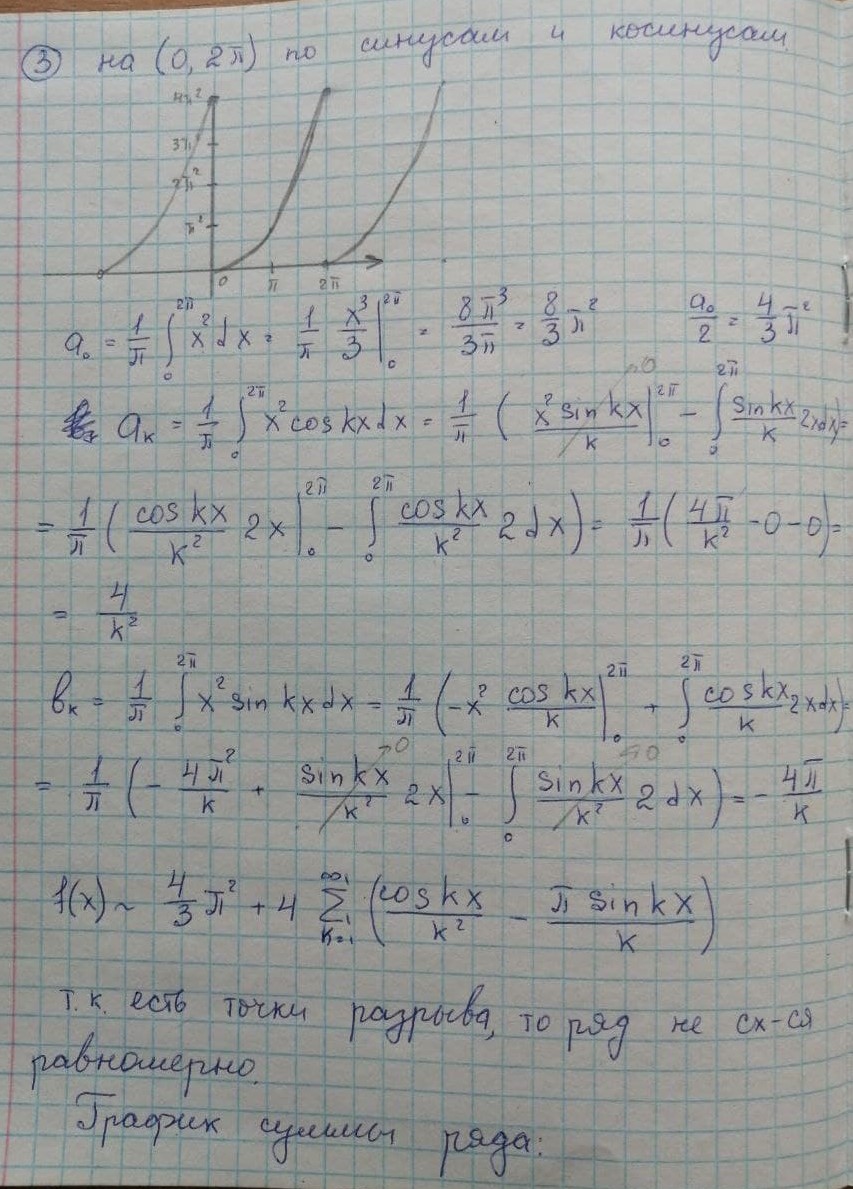 ③ на (0, 2π) по синусам и косинусам
4π²
3π
2π²
π²
0 π 2π
a₀ = 1/π ∫₀^{2π} x² dx = 1/π x³/3 |₀^{2π} = 8π³/3π = 8/3 π² a₀/2 = 4/3 π²
aₖ = 1/π ∫₀^{2π} x² cos kx dx = 1/π ( x² sin kx/k |₀^{2π} →0 − ∫₀^{2π} sin kx/k 2x dx) =
= 1/π ( cos kx/k² 2x |₀^{2π} − ∫₀^{2π} cos kx/k² 2 dx) = 1/π ( 4π/k² − 0 − 0) =
= 4/k²
bₖ = 1/π ∫₀^{2π} x² sin kx dx = 1/π (−x² cos kx/k |₀^{2π} + ∫₀^{2π} cos kx/k 2x dx) =
= 1/π (− 4π²/k + sin kx/k² →0 2x |₀^{2π} − ∫₀^{2π} sin kx/k² 2 dx =0 ) = − 4π/k
f(x) ~ 4/3 π² + 4 ∑_{k=1}^{∞} ( cos kx/k² − π sin kx/k )
т.к. есть точки разрыва, то ряд не сх-ся
равномерно.
График суммы ряда: